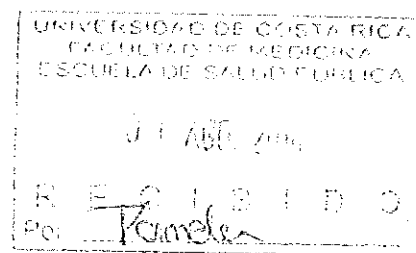 UNIVERSIDAD DE COSTA RICA
FACULTAD DE MEDICINA
ESCUELA DE SALUD PUBLICA
ABR.
RECIBIDO
Por Pamela